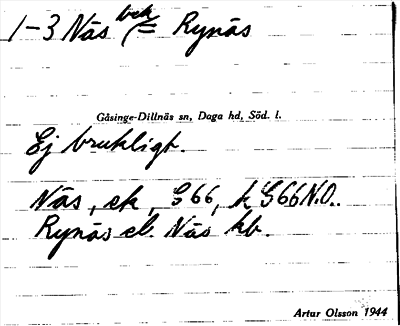 1-3 Näs bck (= Rynäs
Gåsinge-Dillnäs sn, Daga hd, Söd. l.
Ej brukligt.
Näs, ek, G66, k G66 N.O..
Rynäs el. Näs kb.
Artur Olsson 1944